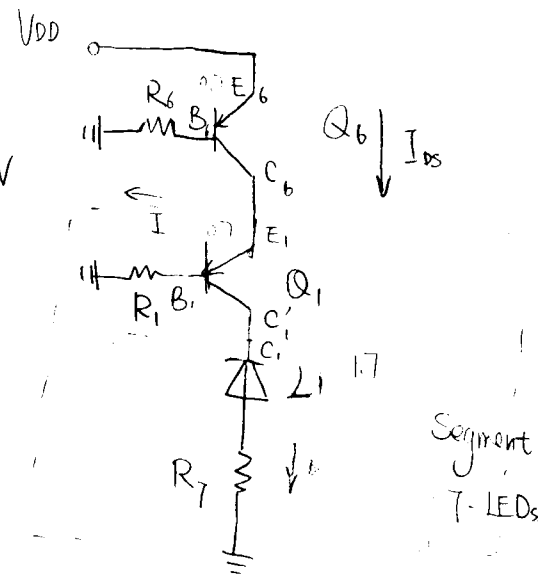 VDD
0.7 E6
R6
B1
Q6
IDS
V
C6
I
0.7
E1
R1
B1
Q1
C1'
C1
L1
1.7
R7
Segment
7-LEDs